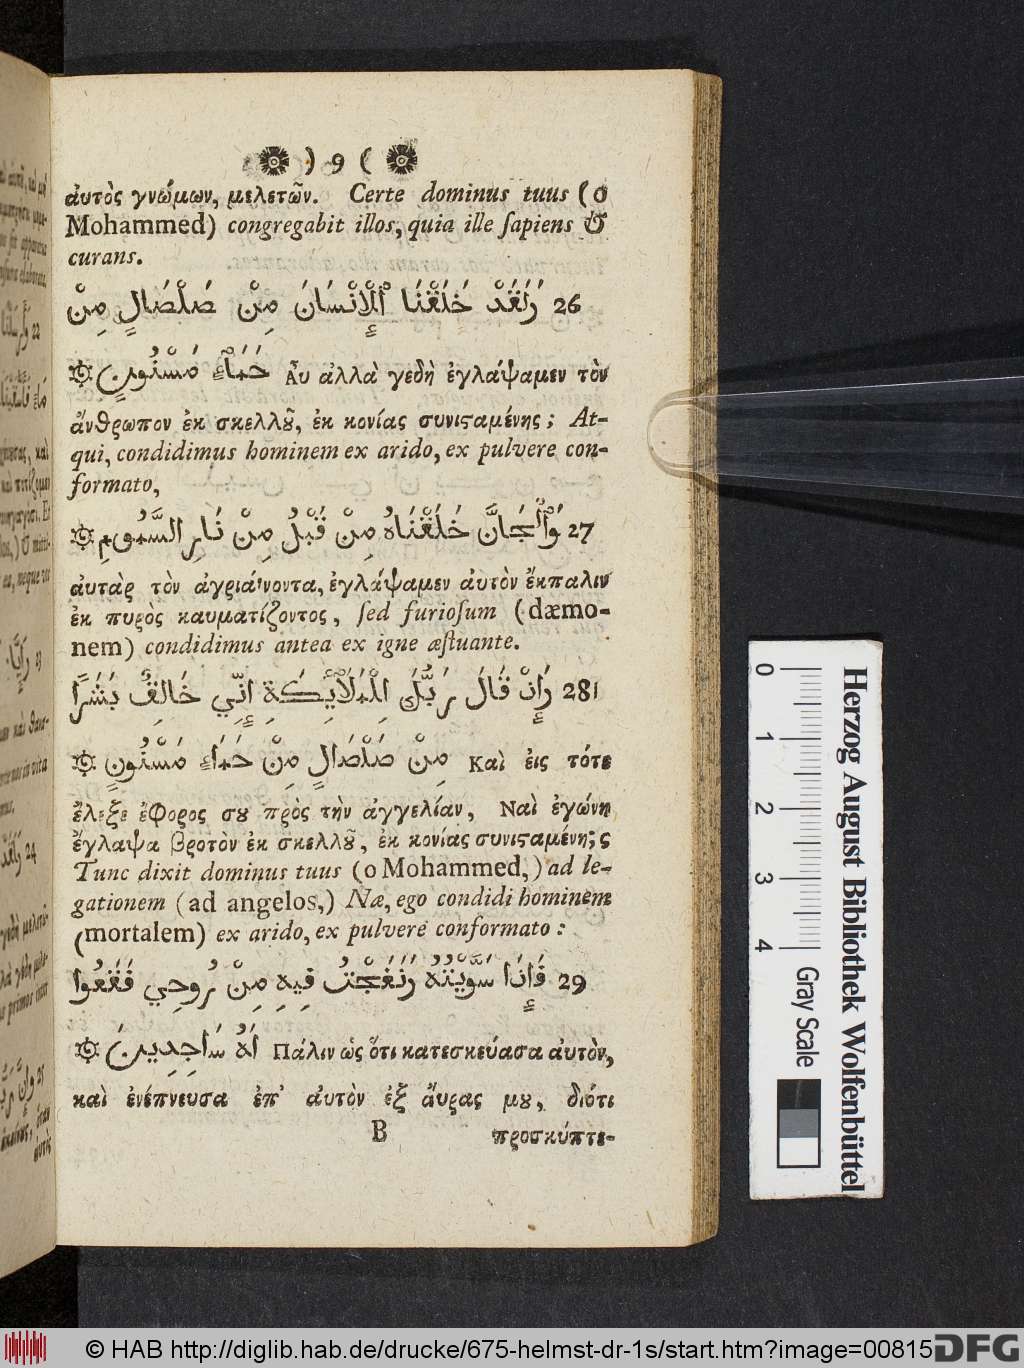 ) 9 (
ἀυτὸς γνώμων, μελετῶν. Certe dominus tuus (o
Mohammed) congregabit illos, quia ille ſapiens &
curans.
26 وَلَقَدْ خَلَقْنَا ٱلْإِنْسَانَ مِنْ صَلْصَالٍ مِنْ
حَمَاءٍ مَسْنُونٍ Ἀυ ἀλλὰ γεδὴ ἐγλάψαμεν τὸν
ἄνθρωπον ἐκ σκελλȣ͂, ἐκ κονίας συνιϛαμένης; At-
qui, condidimus hominem ex arido, ex pulvere con-
formato,
27 وَٱلْجَانَّ خَلَقْنَاهُ مِنْ قَبْلُ مِنْ نَارِ السَّمُومِ
ἀυτὰρ τὸν ἀγριάινοντα, ἐγλάψαμεν ἀυτὸν ἔκπαλιν
ἐκ πυρὸς καυματίζοντος, ſed furioſum (dæmo-
nem) condidimus antea ex igne æſtuante.
28 وَإِذْ قَالَ رَبُّكَ لِلْمَلَائِكَةِ إِنِّي خَالِقٌ بَشَرًا
مِنْ صَلْصَالٍ مِنْ حَمَاءٍ مَسْنُونٍ Καὶ ἐις τότε
ἔλεξε ἐφορος σȣ πρὸς τὴν ἀγγελίαν, Ναὶ ἐγώνη
ἔγλαψα βροτὸν ἐκ σκελλȣ͂, ἐκ κονίας συνιϛαμένη;ς
Tunc dixit dominus tuus (o Mohammed,) ad le-
gationem (ad angelos,) Næ, ego condidi hominem
(mortalem) ex arido, ex pulvere conformato:
29 فَإِذَا سَوَّيْتُهُ وَنَفَخْتُ فِيهِ مِنْ رُوحِي فَقَعُوا
لَهُ سَاجِدِينَ Πάλιν ὡς ὅτι κατεσκεύασα ἀυτὸν,
καὶ ἐνέπνευσα ἐπ' ἀυτὸν ἐξ ἄυρας μȣ, διότι
B προσκύπτε-
0 1 2 3 4
Herzog August Bibliothek Wolfenbüttel
Gray Scale
© HAB http://diglib.hab.de/drucke/675-helmst-dr-1s/start.htm?image=00815
DFG